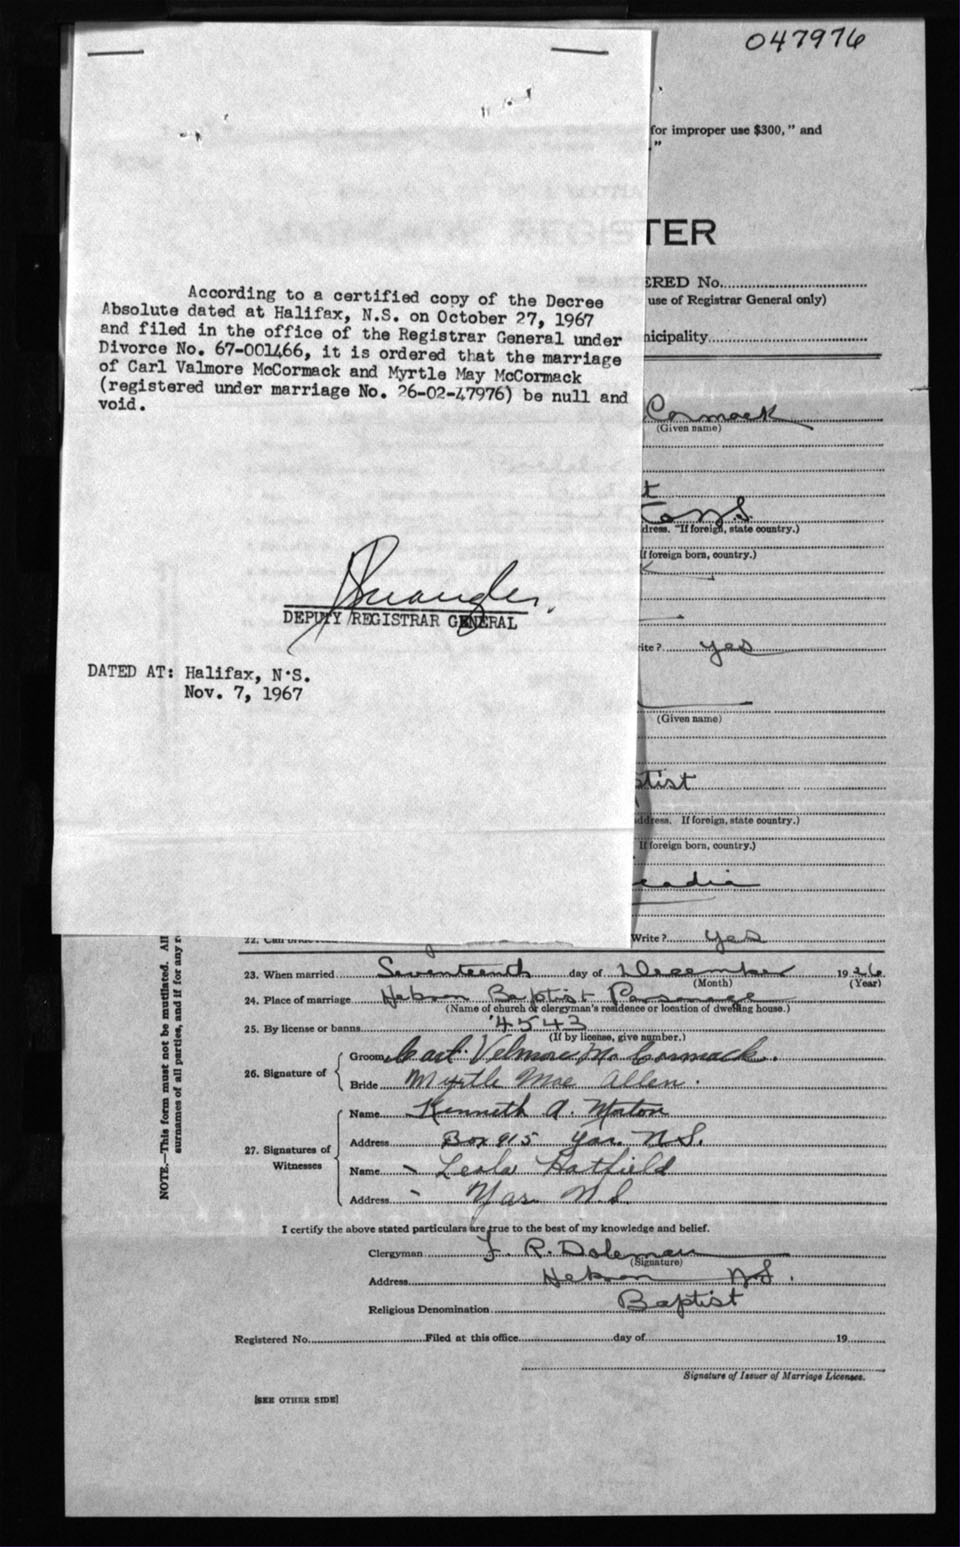 047976
for improper use $300," and
."
TER
ERED No.
use of Registrar General only)
nicipality
According to a certified copy of the Decree
Absolute dated at Halifax, N.S. on October 27, 1967
and filed in the office of the Registrar General under
Divorce No. 67-001466, it is ordered that the marriage
of Carl Valmore McCormack and Myrtle May McCormack
(registered under marriage No. 26-02-47976) be null and
void.
Cormack
(Given name)
t
N.S.
dress. "If foreign, state country.)
If foreign born, country.)
DEPUTY REGISTRAR GENERAL
rite? yes
DATED AT: Halifax, N.S.
Nov. 7, 1967
(Given name)
ptist
ddress. If foreign, state country.)
If foreign born, country.)
cadia
22. Can bride
Write? yes
NOTE.—This form must not be mutilated. All
surnames of all parties, and if for any r
23. When married Seventeenth day of December 1926
(Month) (Year)
24. Place of marriage Hebron Baptist Parsonage
(Name of church or clergyman's residence or location of dwelling house.)
25. By license or banns 4543
(If by license, give number.)
26. Signature of
Groom Carl Velmore McCormack.
Bride Myrtle Mae Allen.
27. Signatures of Witnesses
Name Kenneth A. Morton
Address Box 915 Yar. N.S.
Name Leola Hatfield
Address Yar. N.S
I certify the above stated particulars are true to the best of my knowledge and belief.
Clergyman F. R. Doleman
(Signature)
Address Hebron N.S.
Religious Denomination Baptist
Registered No. Filed at this office day of 19
Signature of Issuer of Marriage Licenses.
[SEE OTHER SIDE]